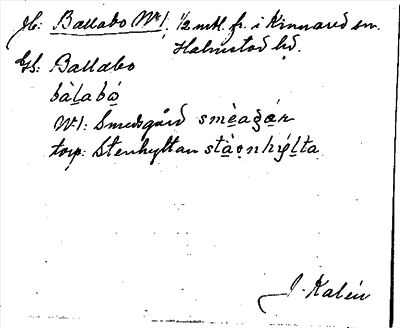 Jb: Ballabo No 1. 1/2 mtl. fr. i Kinnared sn.
Halmstad hd.
Gs: Ballabo
bàlabó
No 1: Smedsgård smèagår
torp: Stenhyltan stàonhýlta
J. Kalén